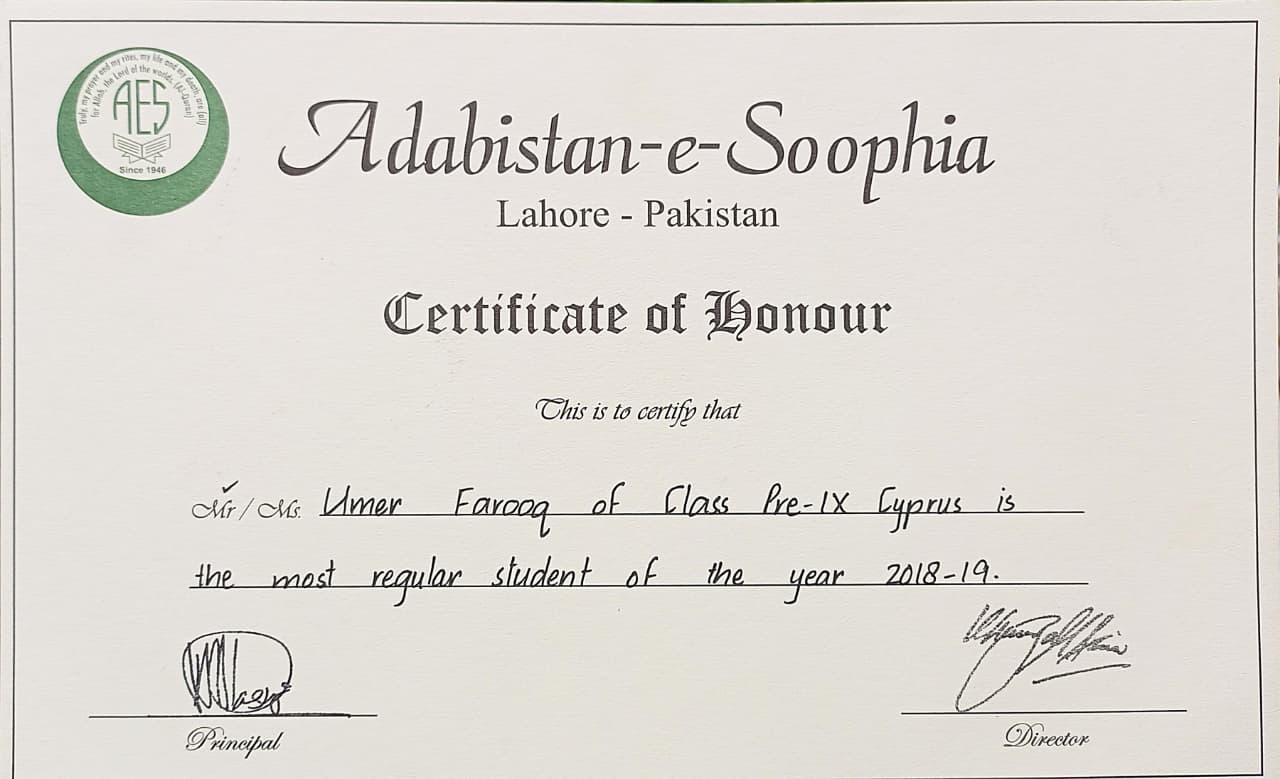 Truly, my prayer and my rites, my life and my death, are (all)
for Allah, the Lord of the worlds. (Al-Quran)
AES
Since 1946
Adabistan-e-Soophia
Lahore - Pakistan
Certificate of Honour
This is to certify that
Mr / Ms. Umer Farooq of Class Pre-IX Cyprus is
the most regular student of the year 2018-19.
Principal
Director